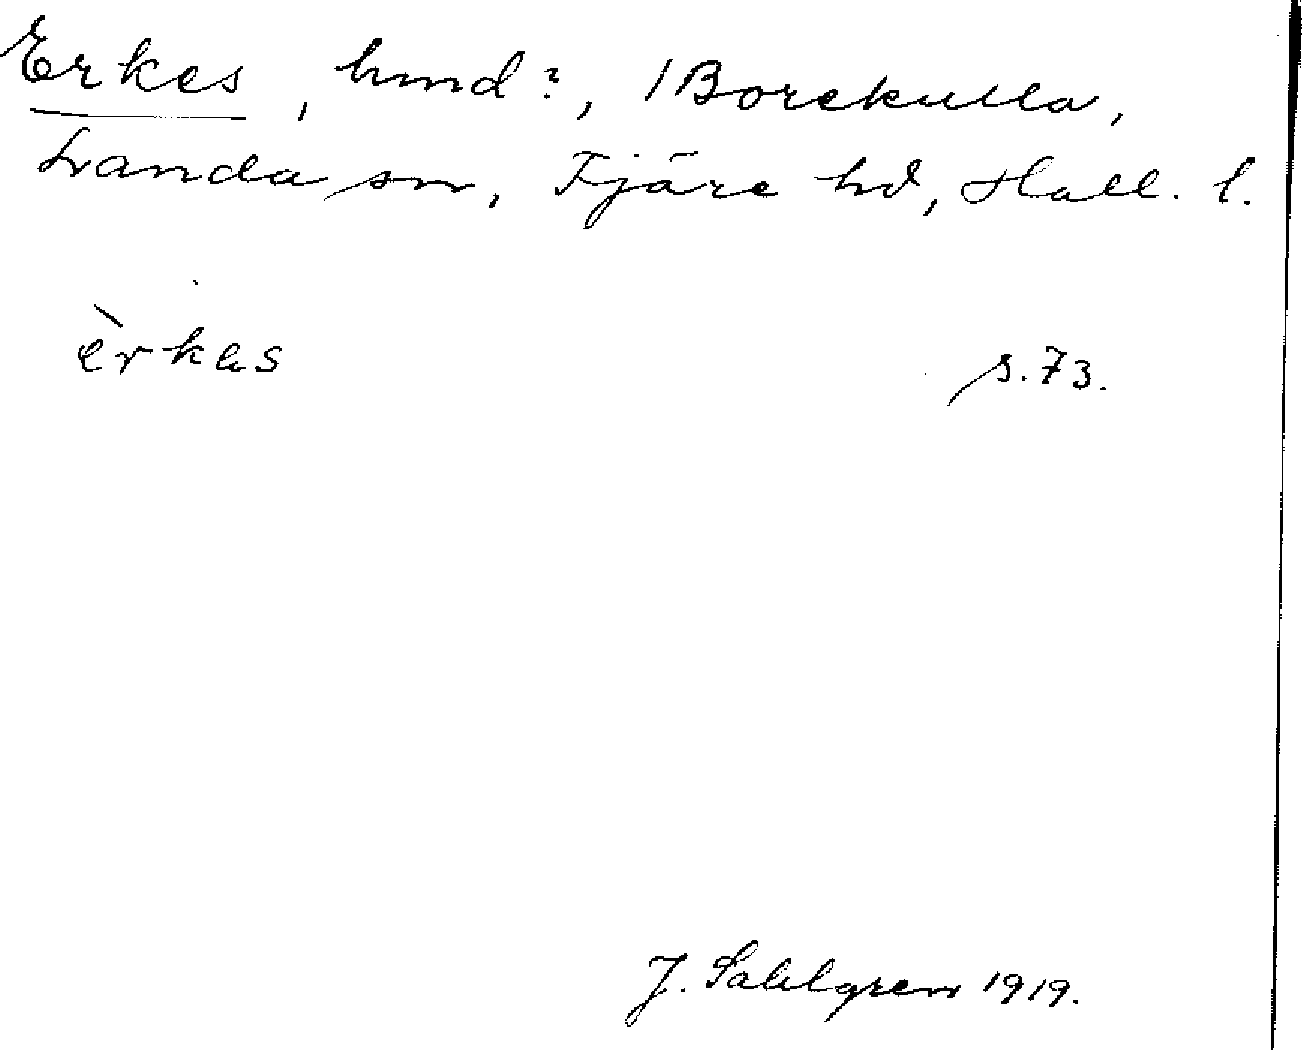 Erkes, hmd?, /Borekulla,
Landa sn, Fjäre hd, Hall. l.
èrkəs
s. 73.
J. Sahlgren 1919.